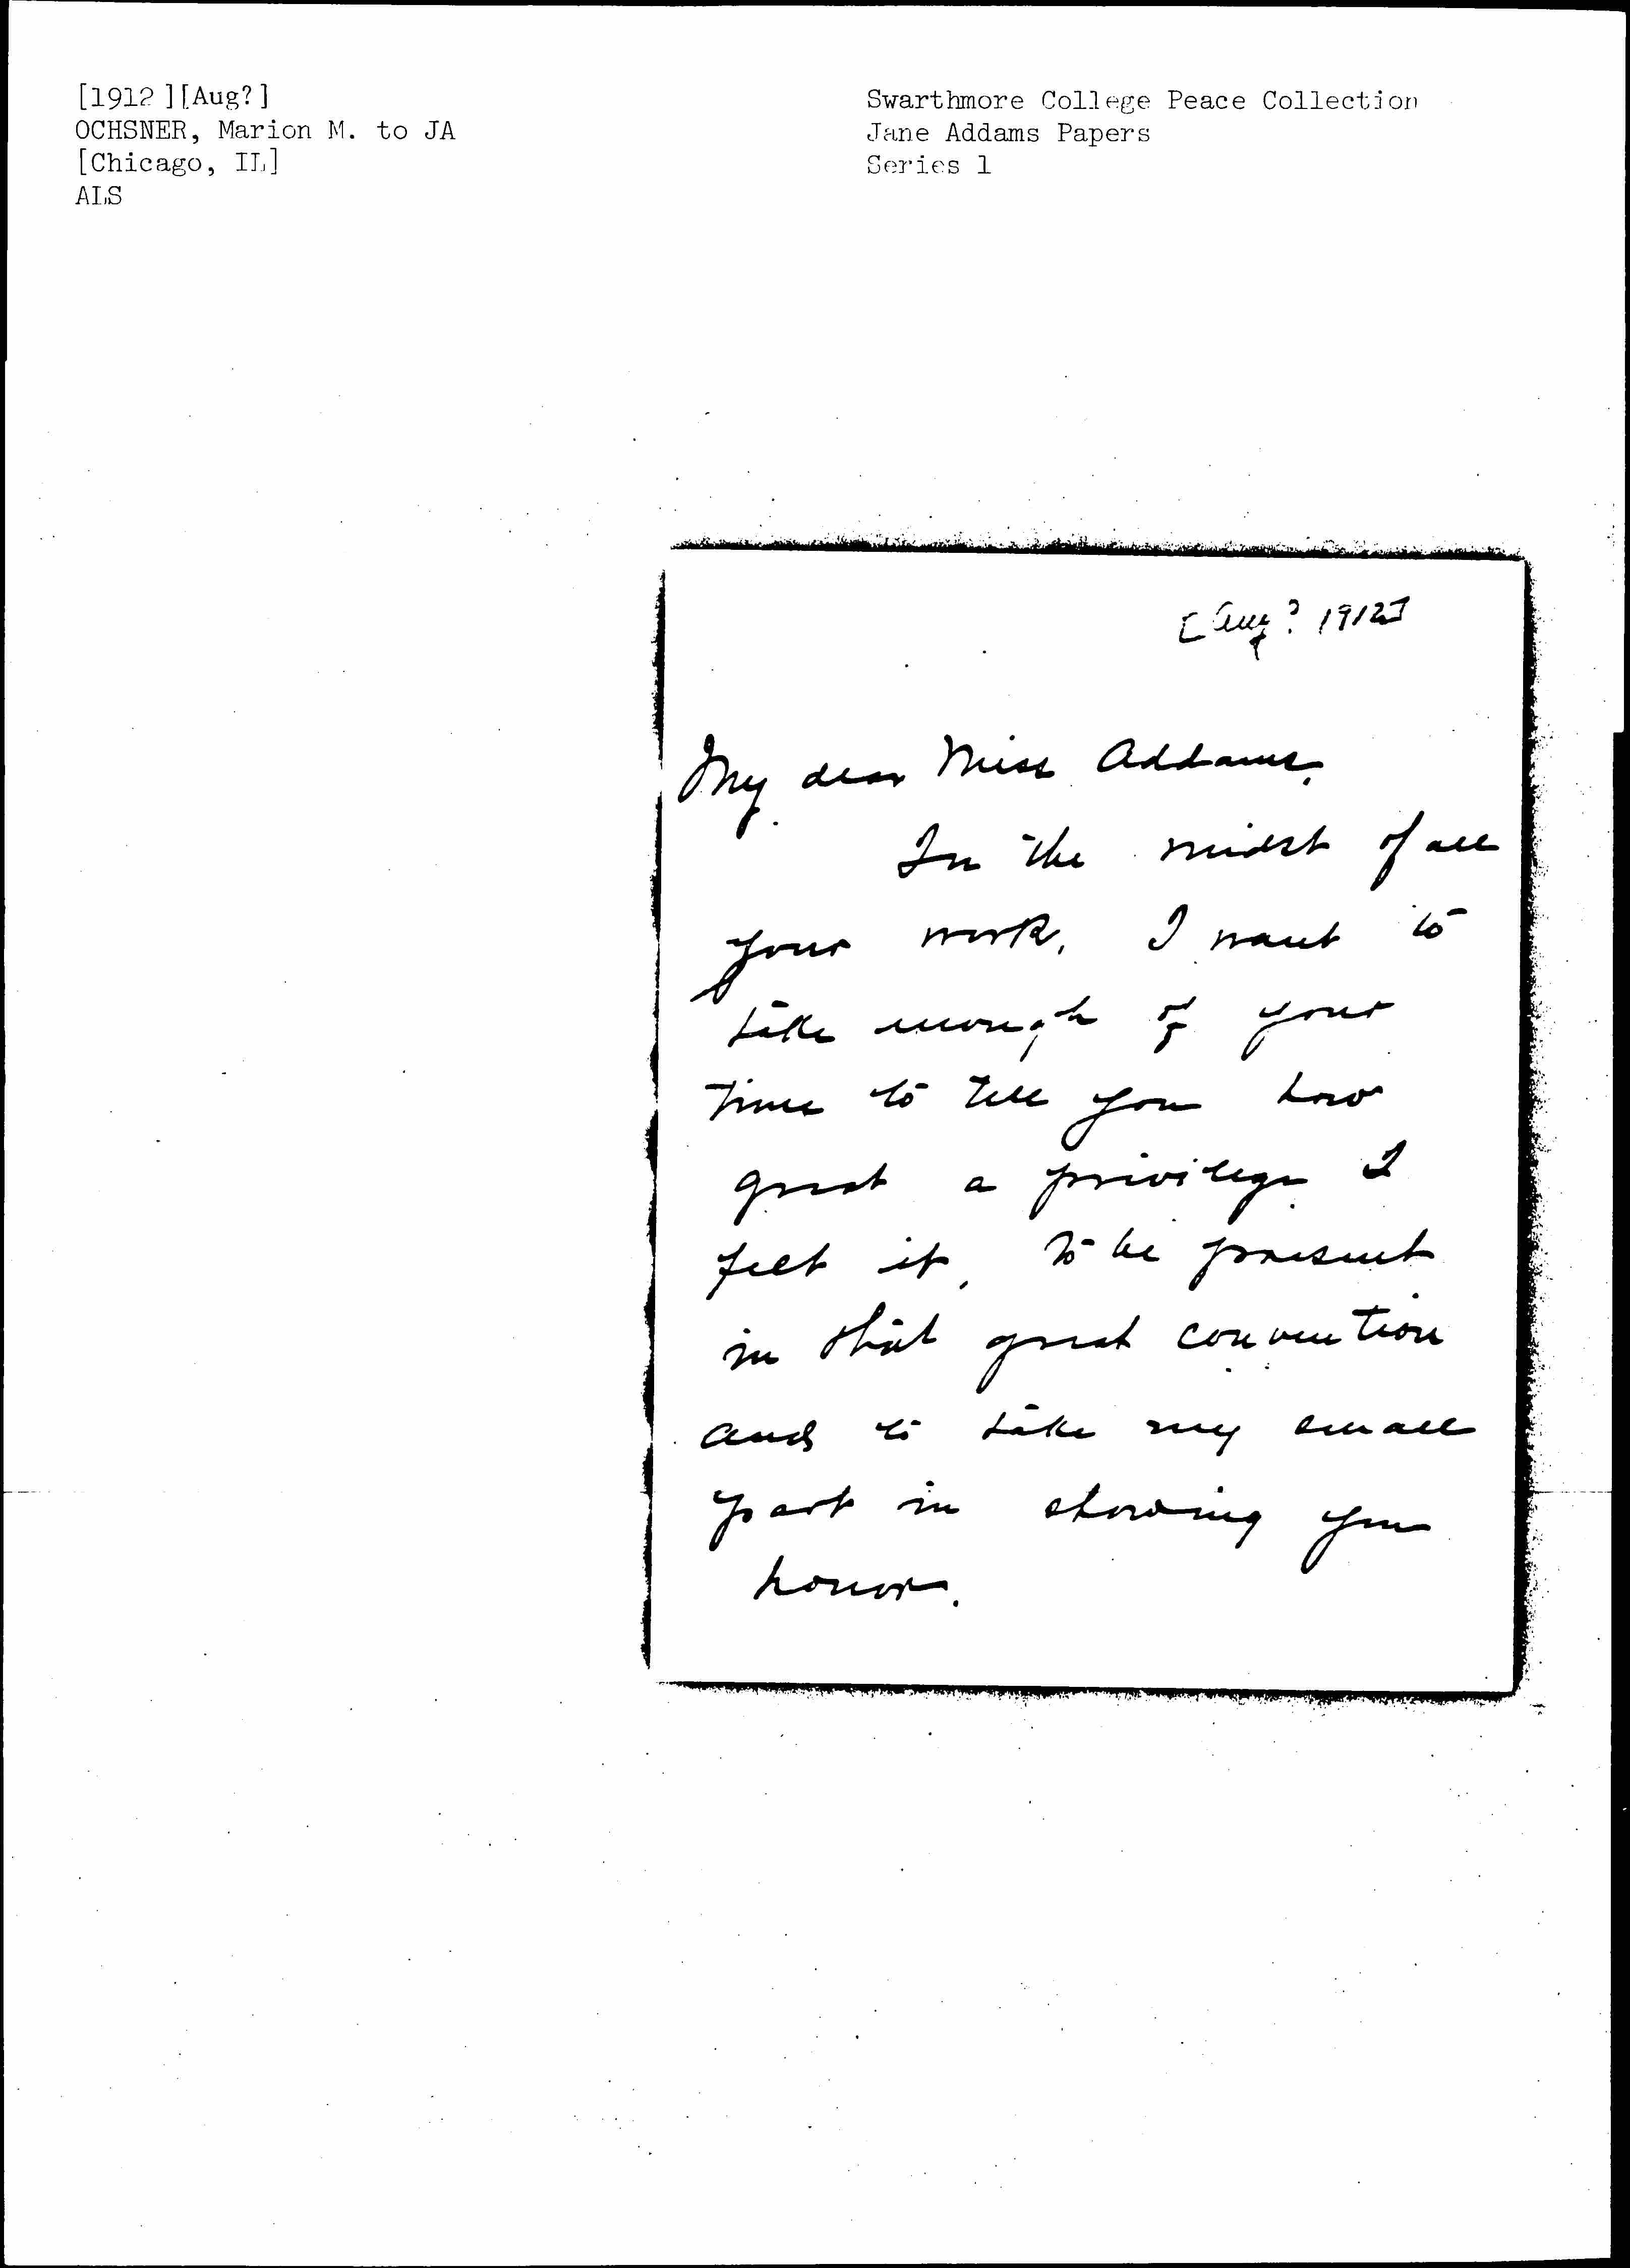 [1912 ][Aug?]
OCHSNER, Marion M. to JA
[Chicago, IL]
ALS
Swarthmore College Peace Collection
Jane Addams Papers
Series 1
[Aug? 1912]
My dear Miss Addams,
In the midst of all
your work, I want to
take enough of your
time to tell you how
great a privilege I
felt it, to be present
in that great convention
and to take my small
part in showing you
honor.